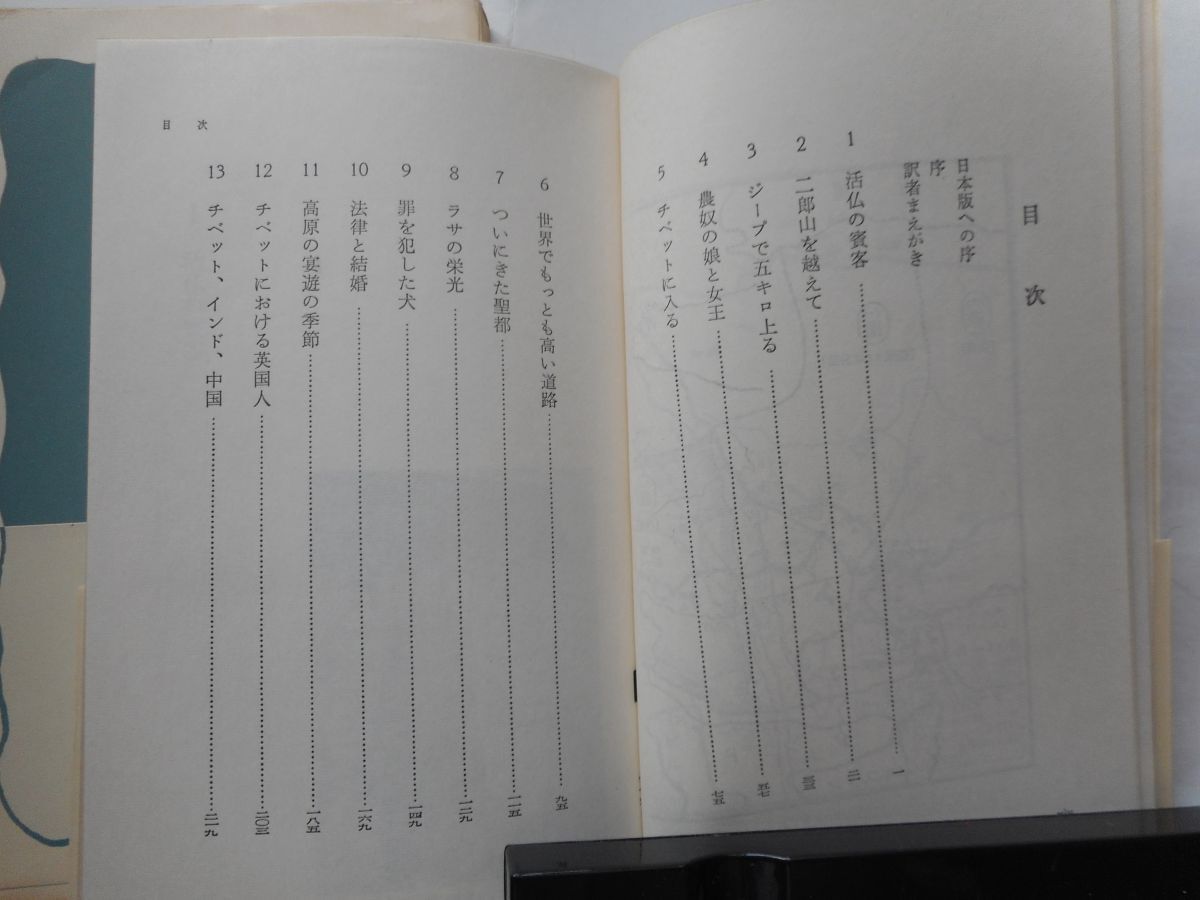 目次
日本版への序
序
訳者まえがき
1 活仏の賓客……一
2 二郎山を越えて……二一
3 ジープで五キロ上る……三三
4 農奴の娘と女王……五七
5 チベットに入る……七五
目次
6 世界でもっとも高い道路……九五
7 ついにきた聖都……一一五
8 ラサの栄光……一二九
9 罪を犯した犬……一四九
10 法律と結婚……一六九
11 高原の宴遊の季節……一八五
12 チベットにおける英国人……二〇三
13 チベット、インド、中国……二一九